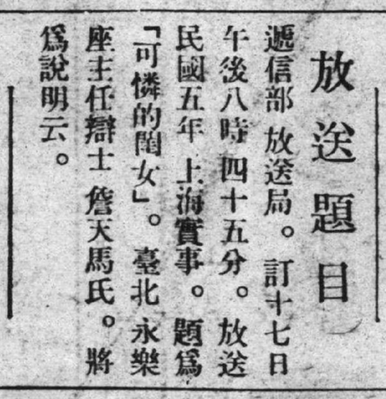 放送題目
遞信部 放送局。訂十七日
午後八時 四十五分。放送
民國五年 上海實事。題爲
「可憐的閨女」。臺北 永樂
座主任辯士 詹天馬氏。將
爲說明云。